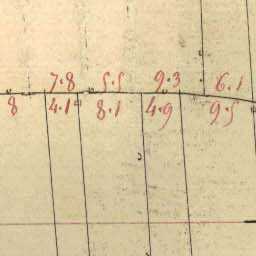 7.8 5.5 9.3 6.1
8 4.1 8.1 4.9 9.5